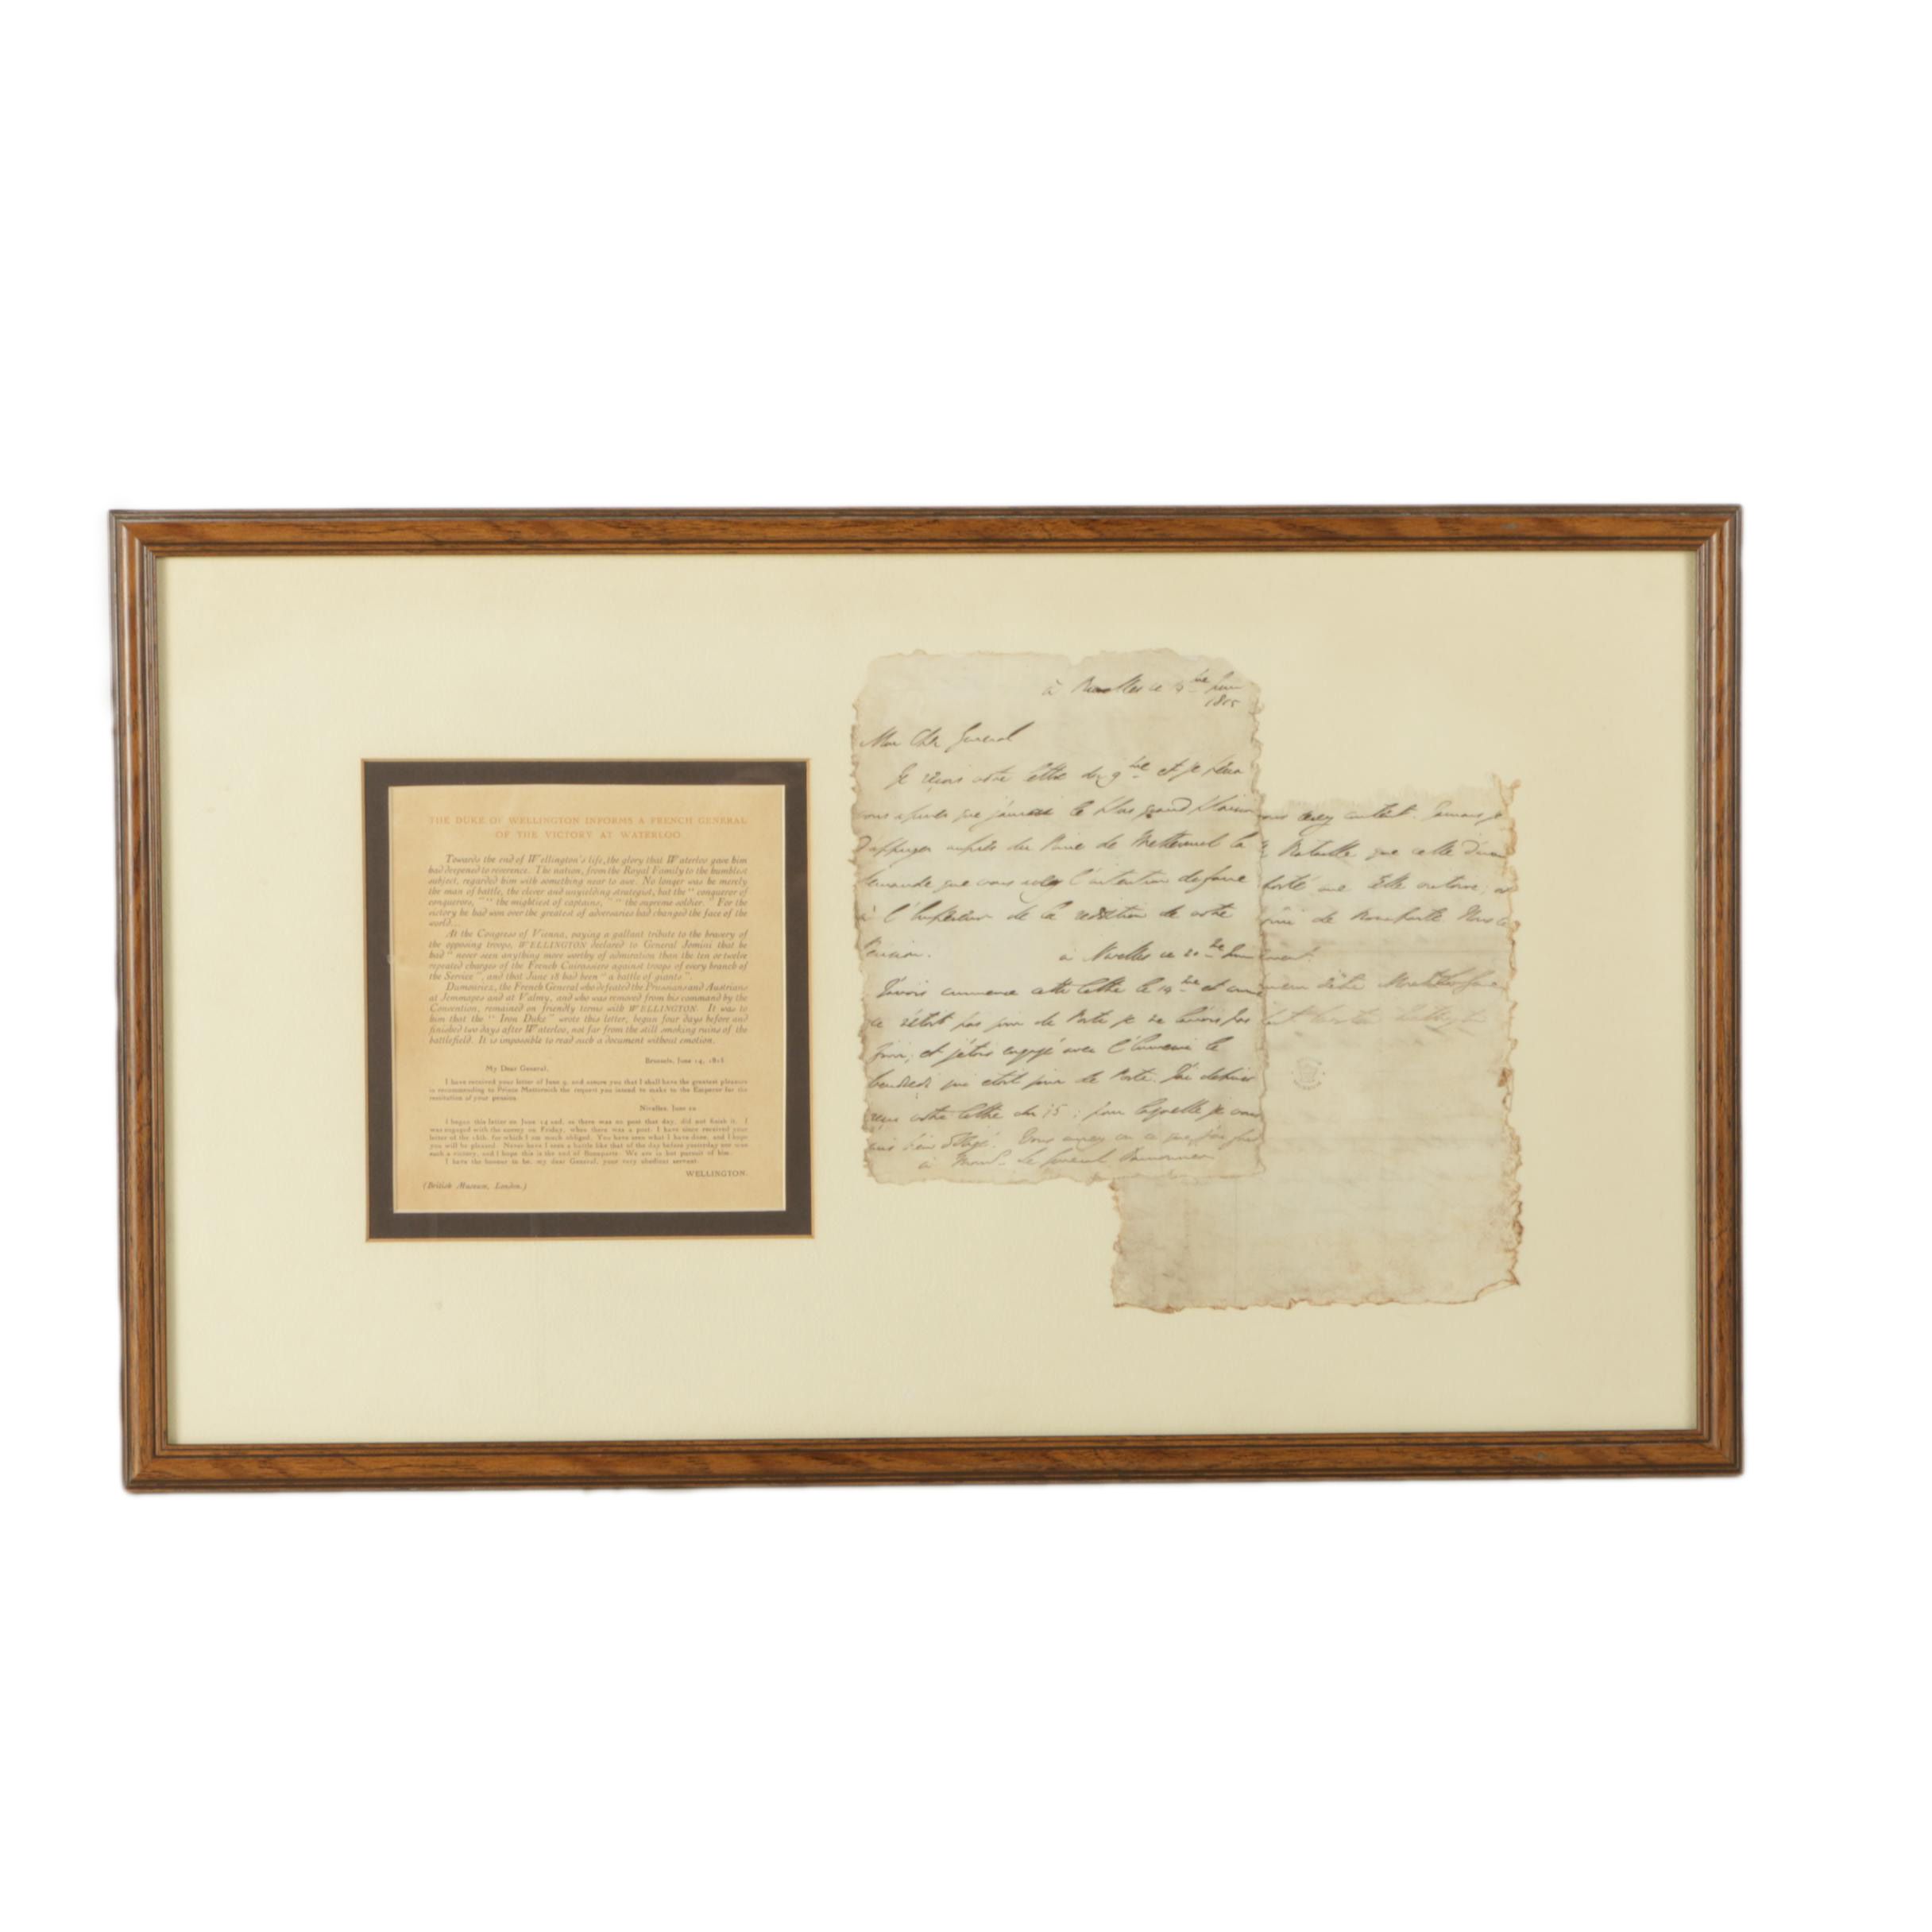 THE DUKE OF WELLINGTON INFORMS A FRENCH GENERAL
OF THE VICTORY AT WATERLOO
Towards the end of Wellington's life, the glory that Waterloo gave him
had deepened to reverence. The nation, from the Royal Family to the humblest
subject, regarded him with something near to awe. No longer was he merely
the man of battle, the clever and unyielding strategist, but the "conqueror of
conquerors," "the mightiest of captains," "the supreme soldier." For the
victory he had won over the greatest of adversaries had changed the face of the
world...
At the Congress of Vienna, paying a gallant tribute to the bravery of
the opposing troops, WELLINGTON declared to General Jomini that he
had "never seen anything more worthy of admiration than the ten or twelve
repeated charges of the French Cuirassiers against troops of every branch of
the Service", and that June 18 had been "a battle of giants".
Dumouriez, the French General who defeated the Prussians and Austrians
at Jemmapes and at Valmy, and who was removed from his command by the
Convention, remained on friendly terms with WELLINGTON. It was to
him that the "Iron Duke" wrote this letter, begun four days before and
finished two days after Waterloo, not far from the still smoking ruins of the
battlefield. It is impossible to read such a document without emotion.
Brussels, June 14, 1815.
My Dear General,
I have received your letter of June 9, and assure you that I shall have the greatest pleasure
in recommending to Prince Metternich the request you intend to make to the Emperor for the
restitution of your pension.
Nivelles, June 20.
I began this letter on June 14 and, as there was no post that day, did not finish it. I
was engaged with the enemy on Friday, when there was a post. I have since received your
letter of the 15th, for which I am much obliged. You have seen what I have done; and I hope
you will be pleased. Never have I seen a battle like that of the day before yesterday nor won
such a victory; and I hope this is the end of Bonaparte. We are in hot pursuit of him.
I have the honour to be, my dear General, your very obedient servant.
WELLINGTON.
(British Museum, London.)
à Bruxelles ce
1815
Mon Cher General
Je reçois votre lettre du 9 et je
vous assurer que j'aurai le plus grand plaisir
D'appuyer auprès du Prince de Metternich la
demande que vous avez l'intention de faire
à l'Empereur de la restitution de votre
Pension.
à Nivelles ce 20 Juin
J'avois commencé cette lettre le 14 et comme
ce n'étoit pas jour de Poste je ne l'avois pas
fini; et j'etois engagé avec l'ennemi le
Vendredi qui etoit jour de Poste. J'ai
reçu votre lettre du 15: pour laquelle je vous
suis bien obligé. Vous aurez vu ce que j'ai fait
à le General Dumouriez
content. Jamais je
Bataille que celle
telle victoire, et
de Bonaparte Nous